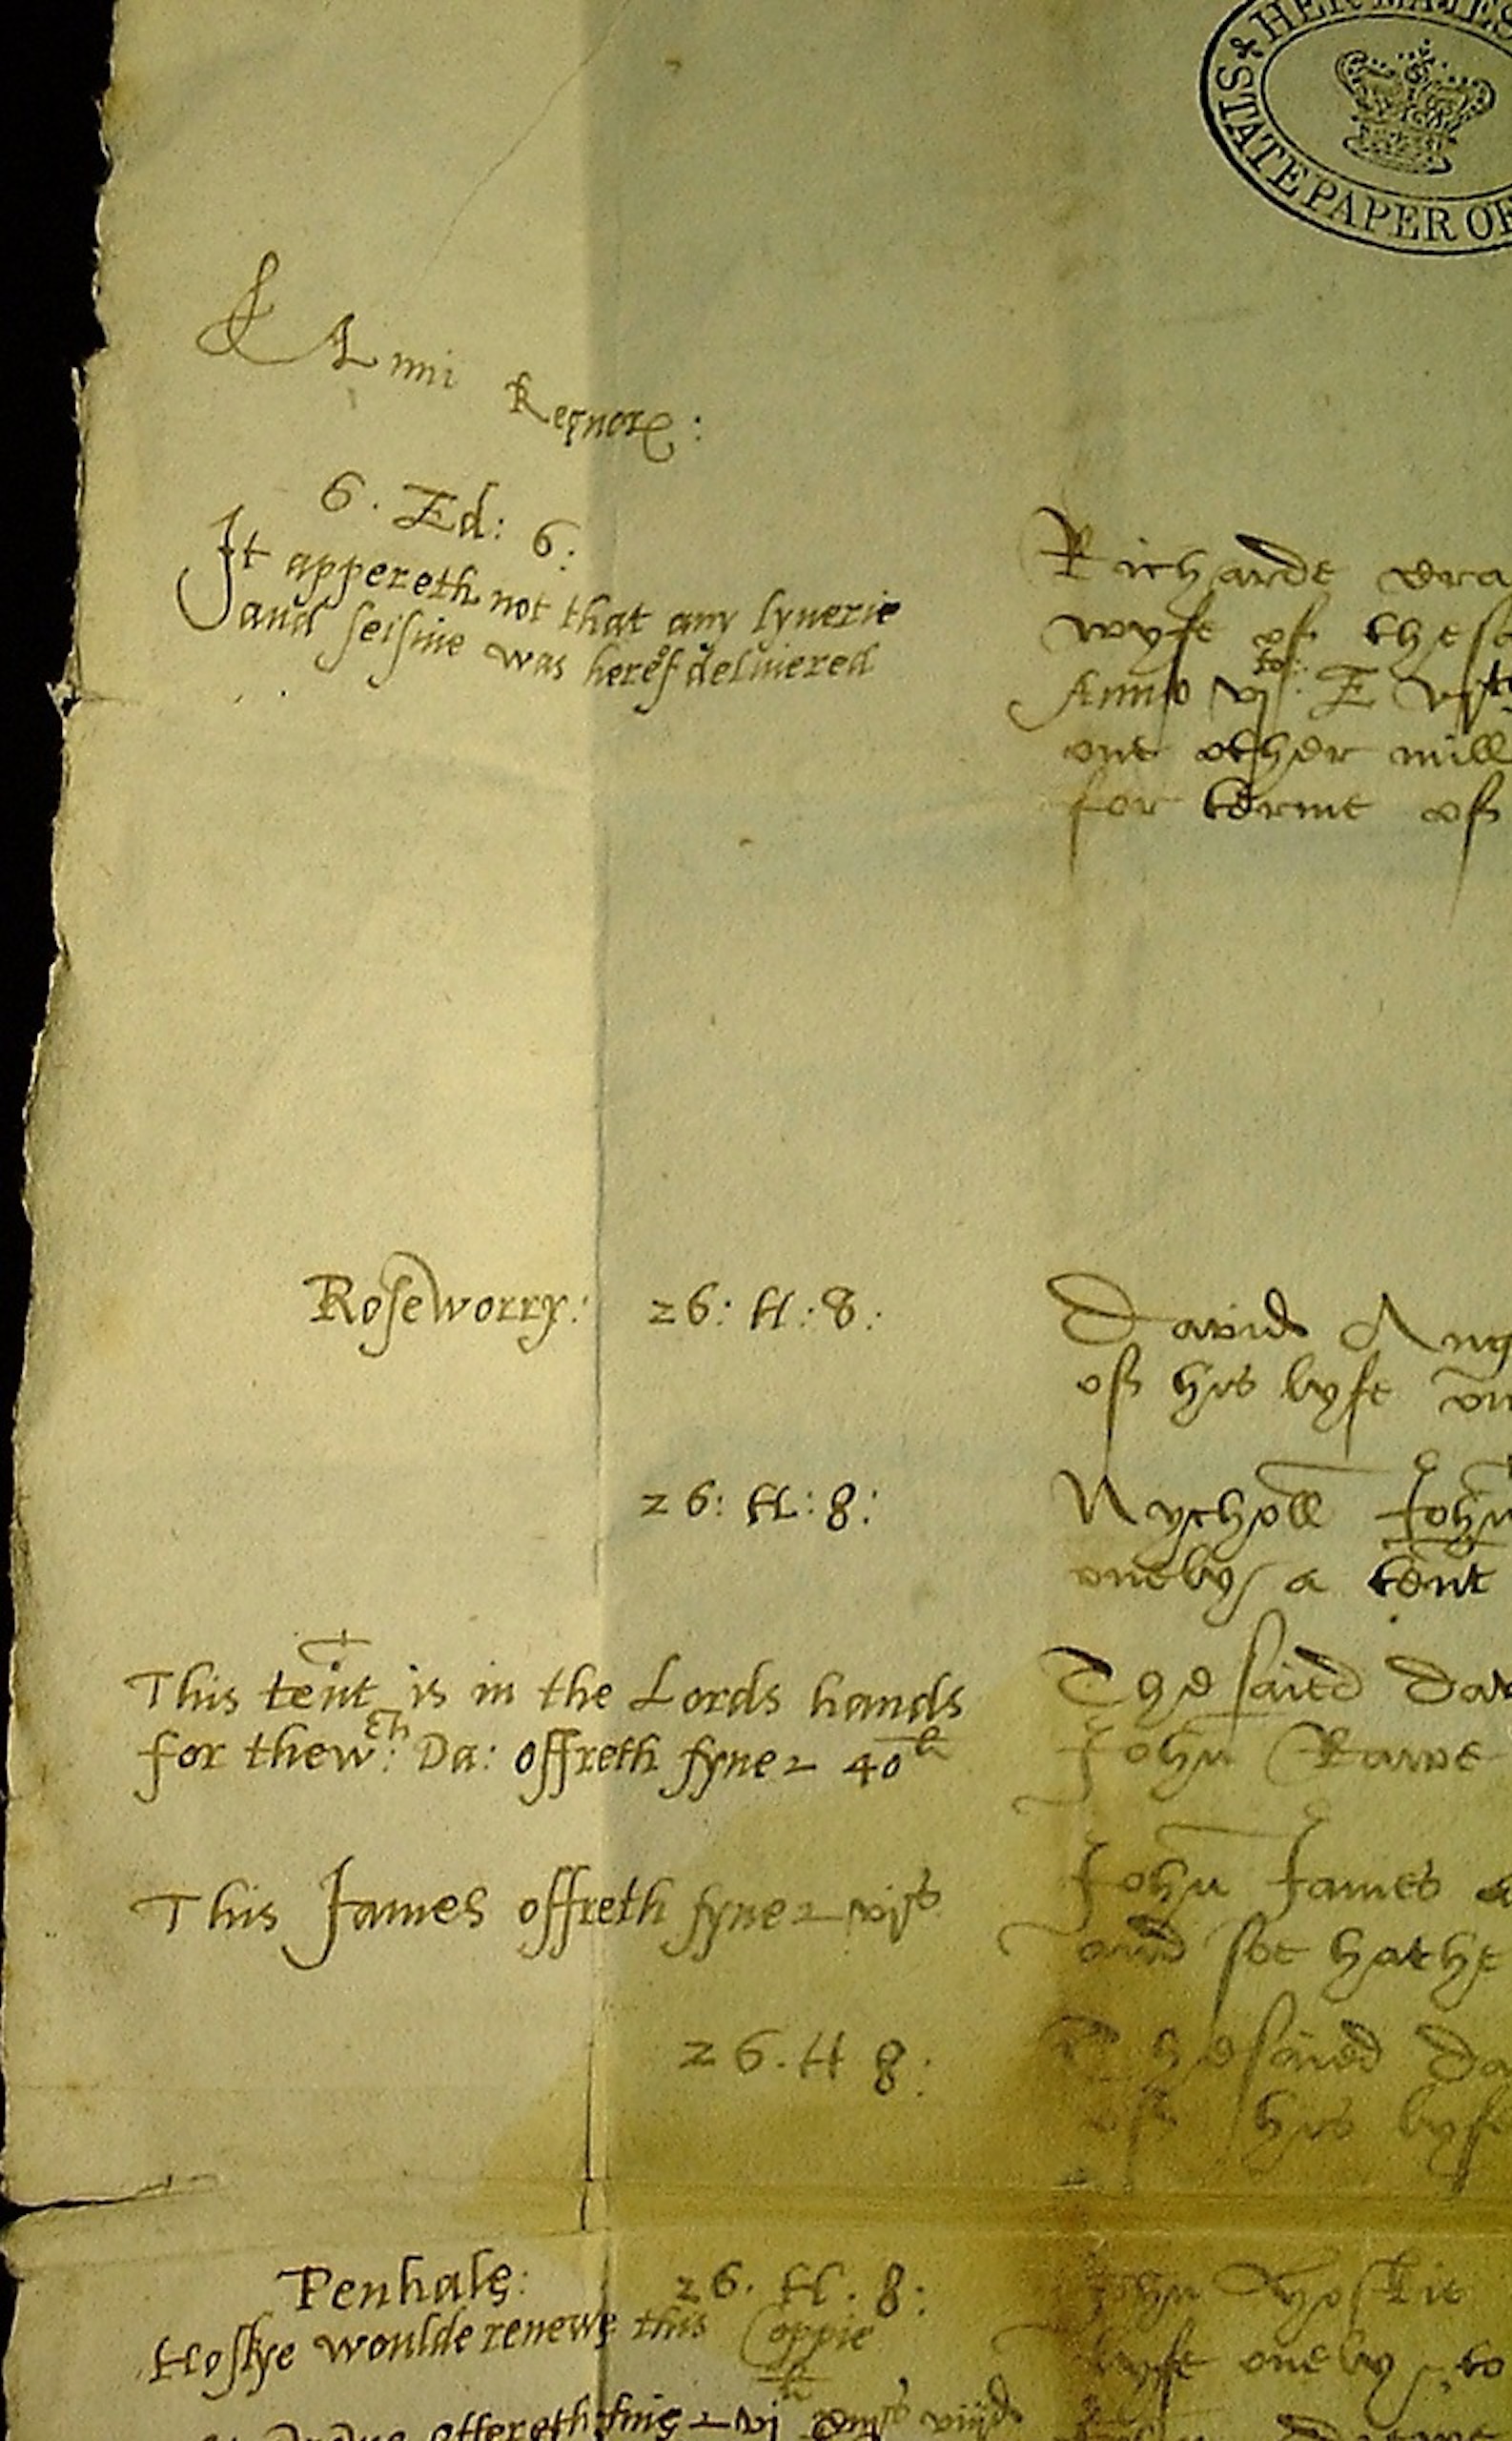 HER MAJES
STATE PAPER OF
& Anni Regnor:
6. Ed: 6:
It appereth not that any lyuerie
and seisine was herof deliuered
Richarde
wyfe of the
Anno vj to: E vj
one other mill
for terme of
Roseworry: 26: H: 8:
Dauid Ang
of his lyfe
26: H: 8:
Nycholl John
onely a tent
This tent is in the Lords hands
for thewch: Da: offreth fyne 40
The saied Da
John Rawe
This James offreth fyne vjs
John James
and soe hathe
26. H 8:
The saied Da
of his lyfe
Penhale: 26. H. 8:
John Hoskie
Hoskye woulde renewe this Coppie
lyfe onely, to
offereth fine vj viijd